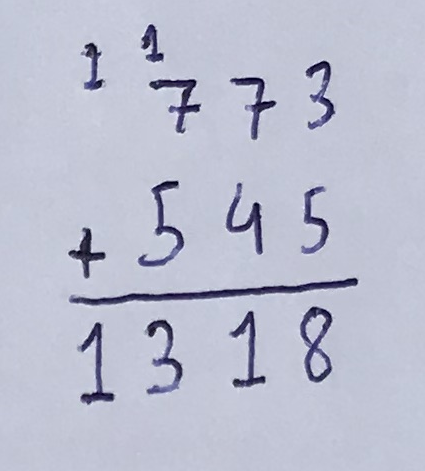 1 1
773
+ 545
1318